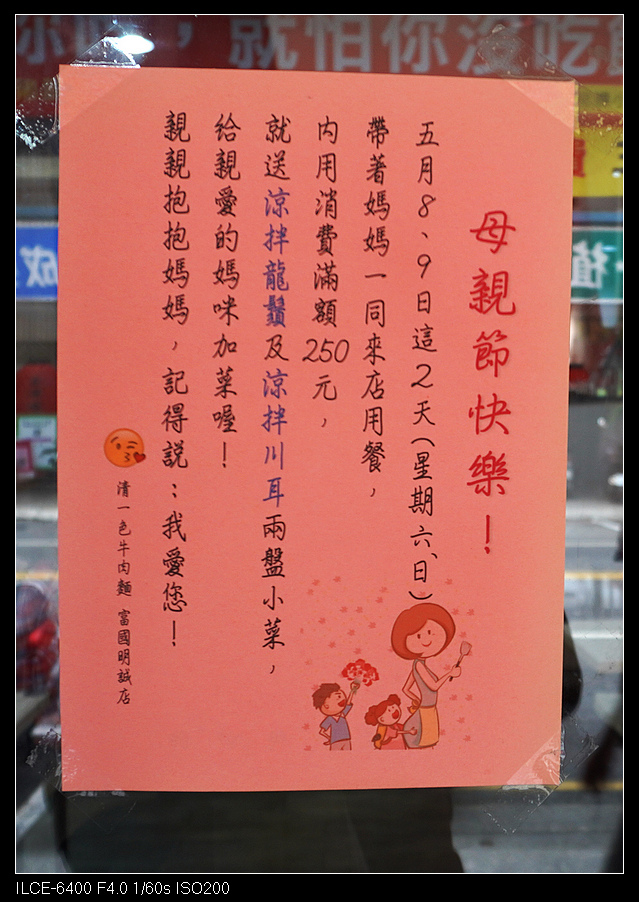 就怕你沒吃飽
母親節快樂！
五月8、9日這2天(星期六、日)
帶著媽媽一同來店用餐，
內用消費滿額250元，
就送涼拌龍鬚及涼拌川耳兩盤小菜，
給親愛的媽咪加菜喔！
親親抱抱媽媽，記得說：我愛您！
清一色牛肉麵 富國明誠店
ILCE-6400 F4.0 1/60s ISO200